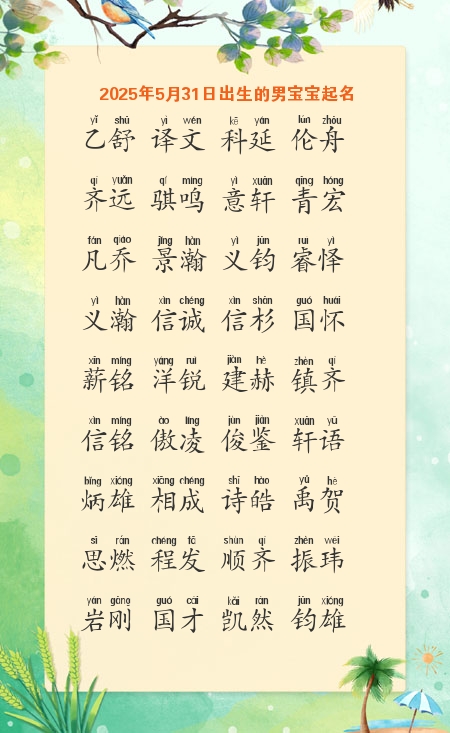 2025年5月31日出生的男宝宝起名
yǐ shū yì wén kē yán lún zhōu
乙舒 译文 科延 伦舟
qí yuǎn qí míng yì xuān qīng hóng
齐远 骐鸣 意轩 青宏
fán qiáo jǐng hàn yì jūn ruì yì
凡乔 景瀚 义钧 睿怿
yì hàn xìn chéng xìn shān guó huái
义瀚 信诚 信杉 国怀
xīn míng yáng ruì jiàn hè zhèn qí
薪铭 洋锐 建赫 镇齐
xìn míng ào líng jùn jiàn xuān yǔ
信铭 傲凌 俊鉴 轩语
bǐng xióng xiāng chéng shī hào yǔ hè
炳雄 相成 诗皓 禹贺
sī rán chéng fā shùn qí zhèn wěi
思燃 程发 顺齐 振玮
yán gāng guó cái kǎi rán jūn xióng
岩刚 国才 凯然 钧雄